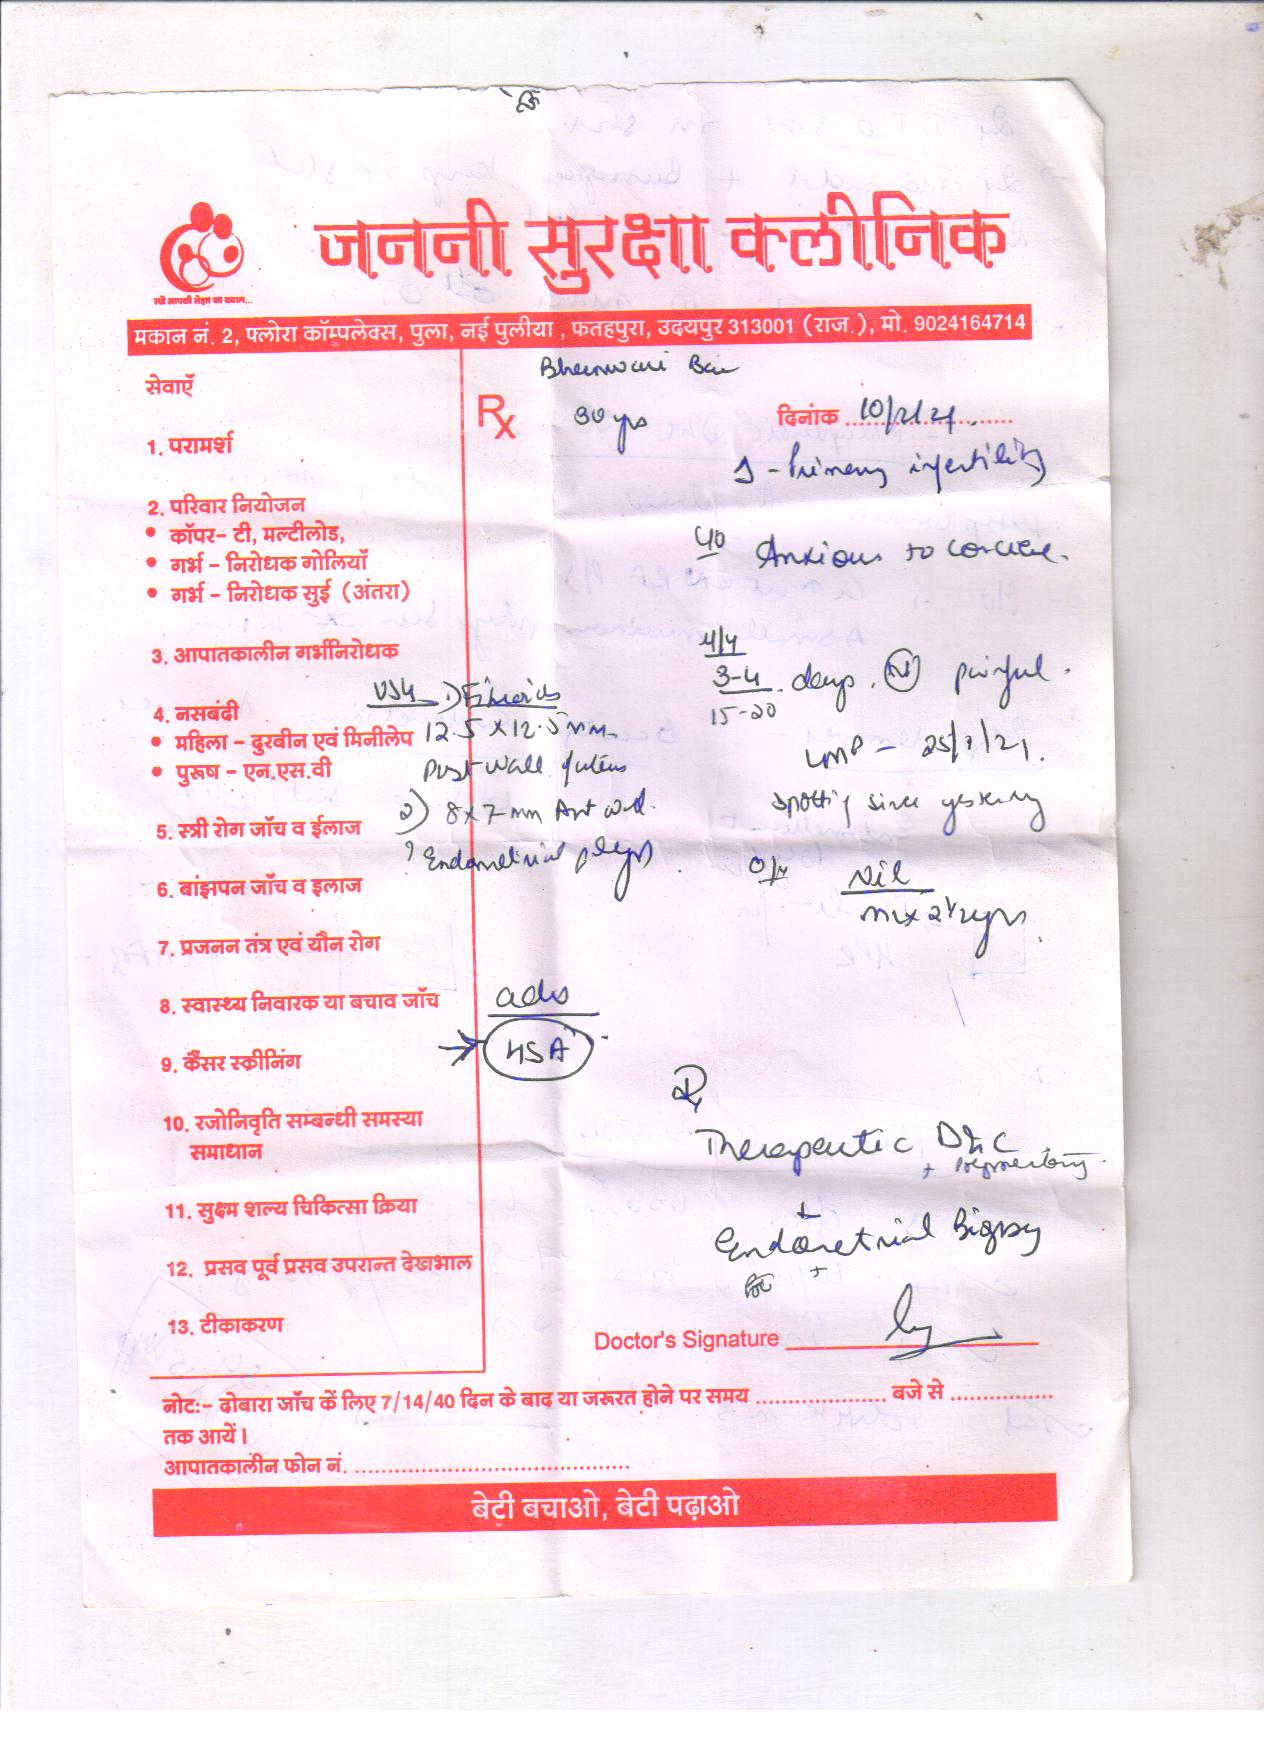 जननी सुरक्षा क्लीनिक
रखें आपकी सेहत का ख्याल...
मकान नं. 2, फ्लोरा कॉम्पलेक्स, पुला, नई पुलीया , फतहपुरा, उदयपुर 313001 (राज.), मो. 9024164714
Bai
Rx
30 yrs
दिनांक
10/2/21
Primary infertility
Anxious to conceive.
4/4
3-4 days. painful.
15-20
LMP - 25/1/21.
spotting since yesterday
O/H Nil
USG 1) Fibroids
12.5 x 12.5 mm
Post wall uterus
2) 8x7 mm Ant wall
? Endometrial polyps
adv
HSA
Rx
Therapeutic D&C
+
+
Endometrial Biopsy
+
Doctor's Signature
सेवाएँ
1. परामर्श
2. परिवार नियोजन
• कॉपर– टी, मल्टीलोड,
• गर्भ – निरोधक गोलियाँ
• गर्भ – निरोधक सुई (अंतरा)
3. आपातकालीन गर्भनिरोधक
4. नसबंदी
• महिला – दुरबीन एवं मिनीलेप
• पुरूष – एन.एस.वी
5. स्त्री रोग जाँच व ईलाज
6. बांझपन जाँच व इलाज
7. प्रजनन तंत्र एवं यौन रोग
8. स्वास्थ्य निवारक या बचाव जाँच
9. कैंसर स्क्रीनिंग
10. रजोनिवृति सम्बन्धी समस्या
समाधान
11. सुक्ष्म शल्य चिकित्सा क्रिया
12. प्रसव पूर्व प्रसव उपरान्त देखभाल
13. टीकाकरण
नोट:– दोबारा जाँच कें लिए 7/14/40 दिन के बाद या जरूरत होने पर समय .................... बजे से ................
तक आयें।
आपातकालीन फोन नं. ..........................................
बेटी बचाओ, बेटी पढ़ाओ